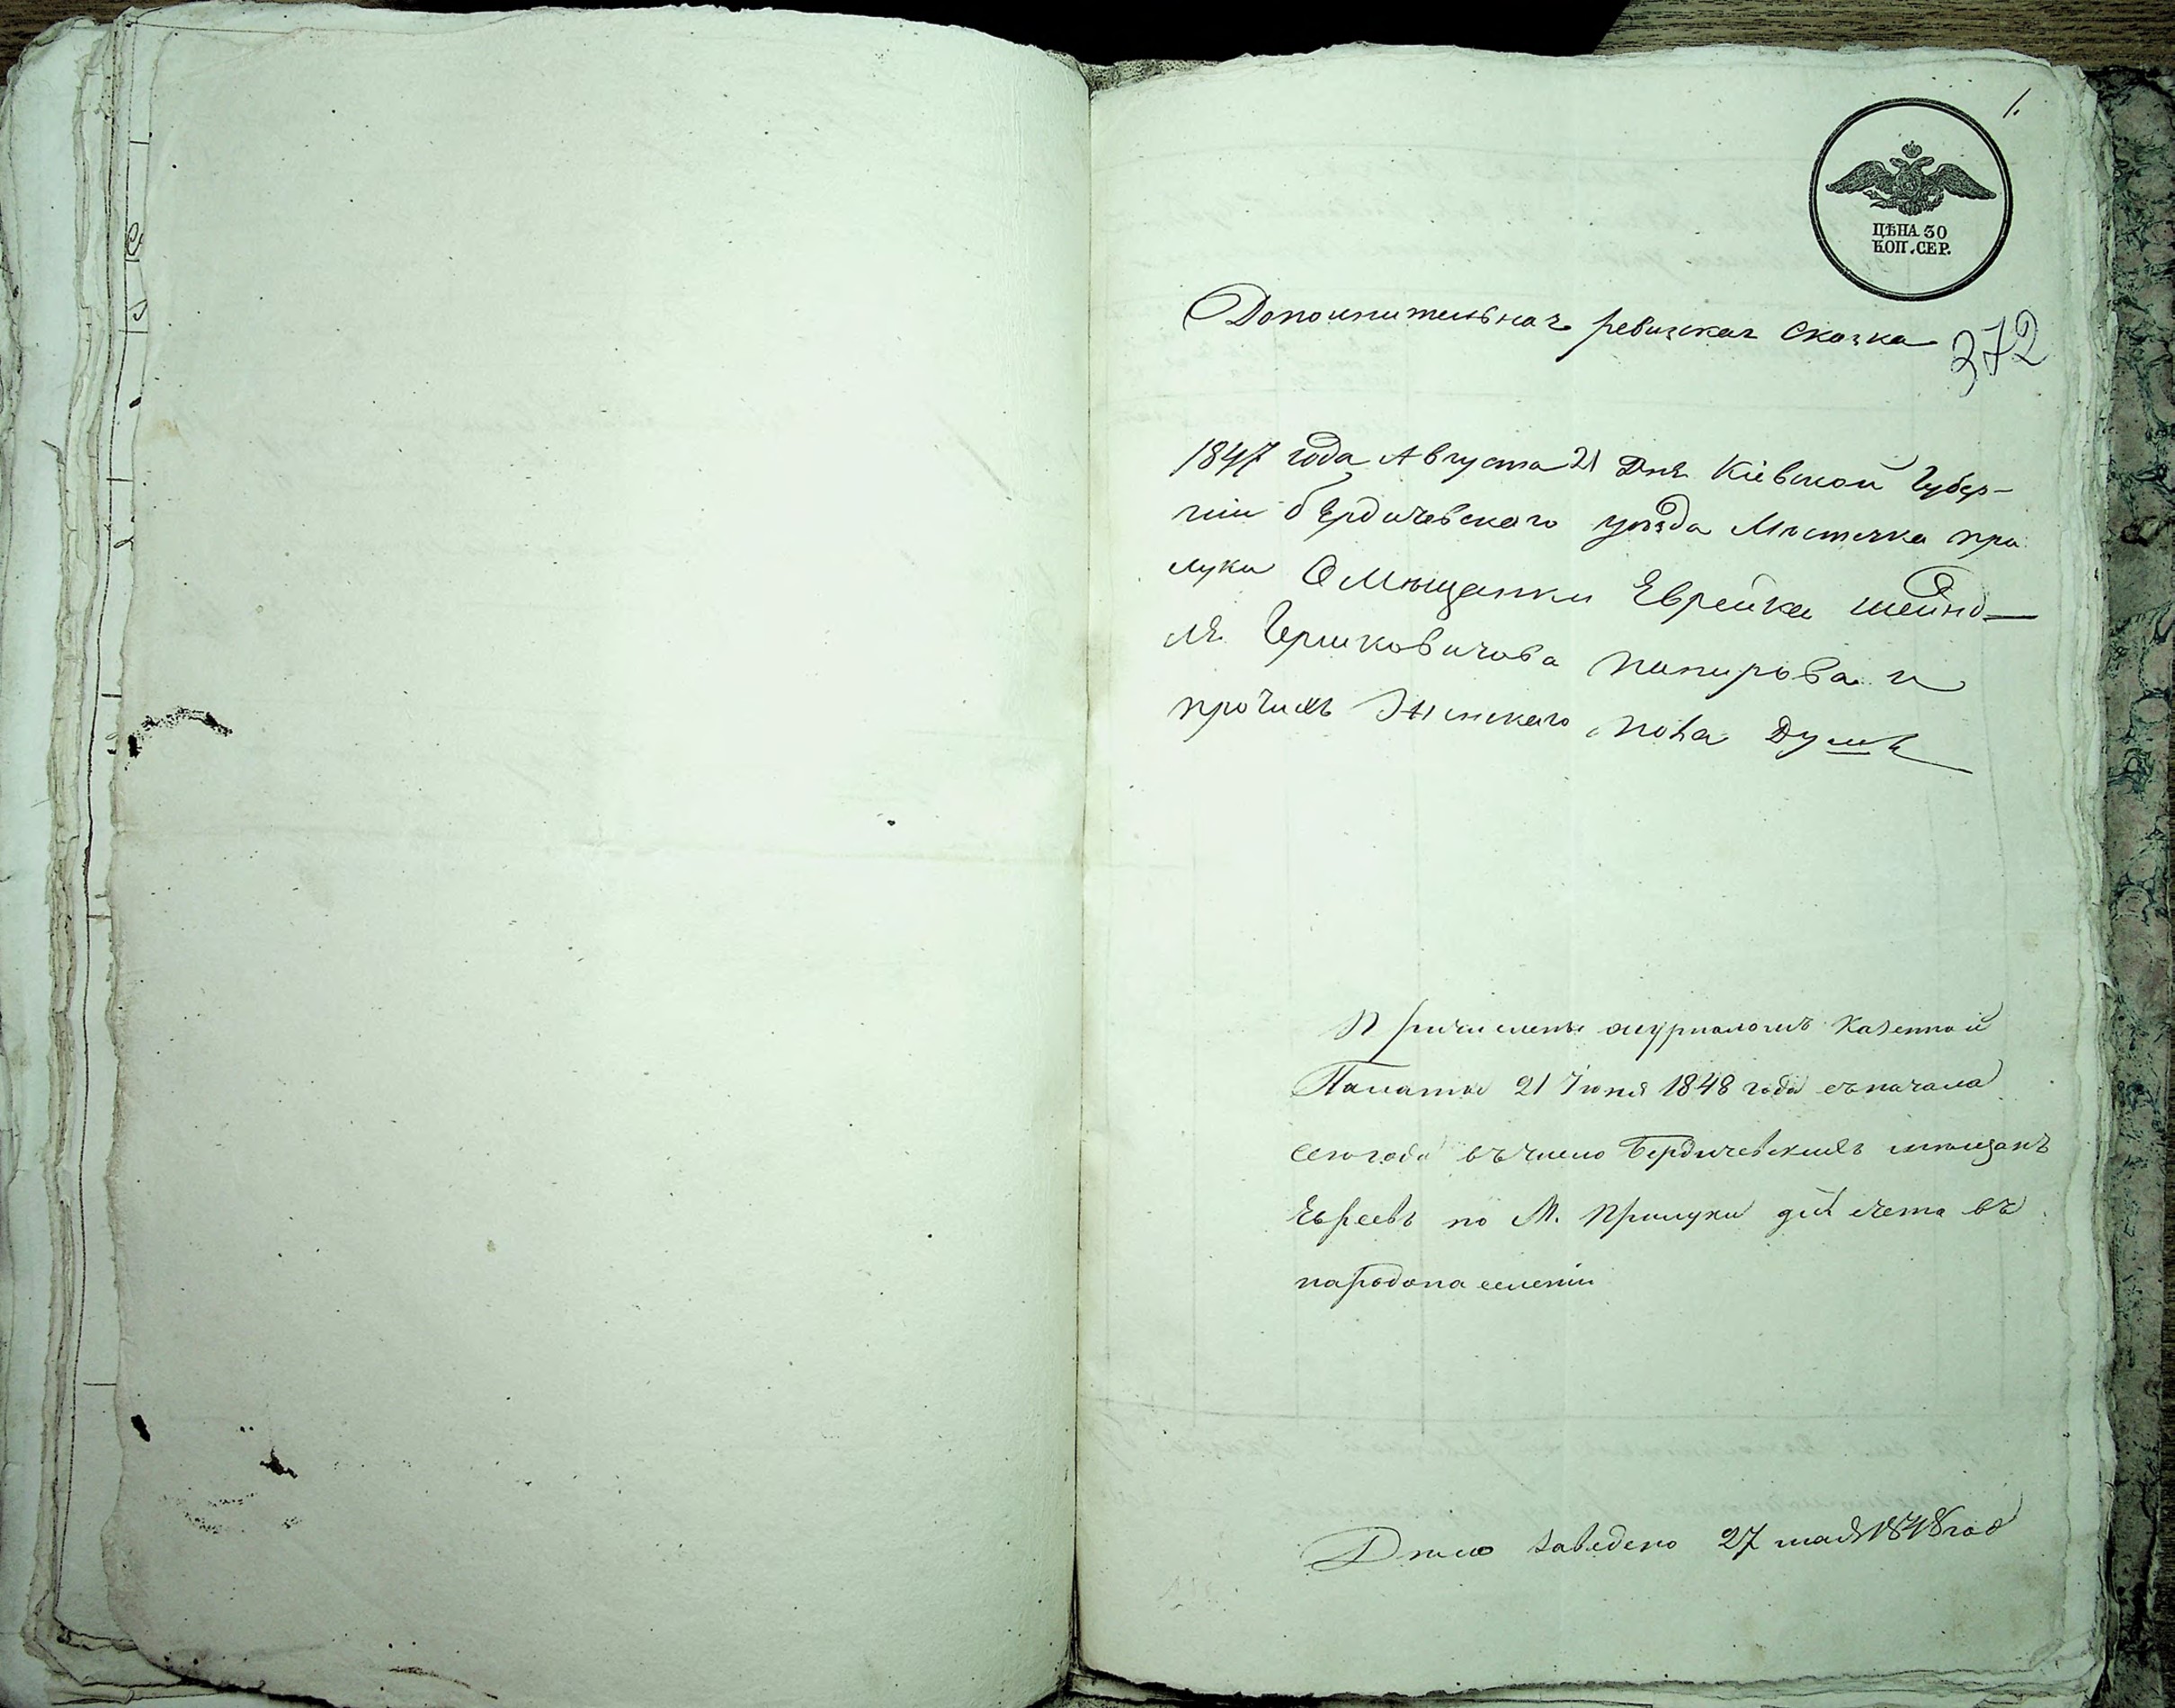 1.
ЦѢНА 30
КОП. СЕР.
Дополнительная ревизская сказка
372
1847 года Августа 21 Дня Кіевской Губер-
ніи бердичевского уѣзда Мѣстечка при
луки О Мѣщанки Еврейки шейнд-
ля Гершковичова папирова и
прочихъ Женскаго пола Душъ
Причислены журналомъ Казенной
Палаты 21 Іюня 1848 года съ начала
сего года въ число Бердичевскихъ мѣщанъ
Евреевъ по М. Прилуки для счета въ
народонаселеніи
Дѣло заведено 27 мая 1848 год